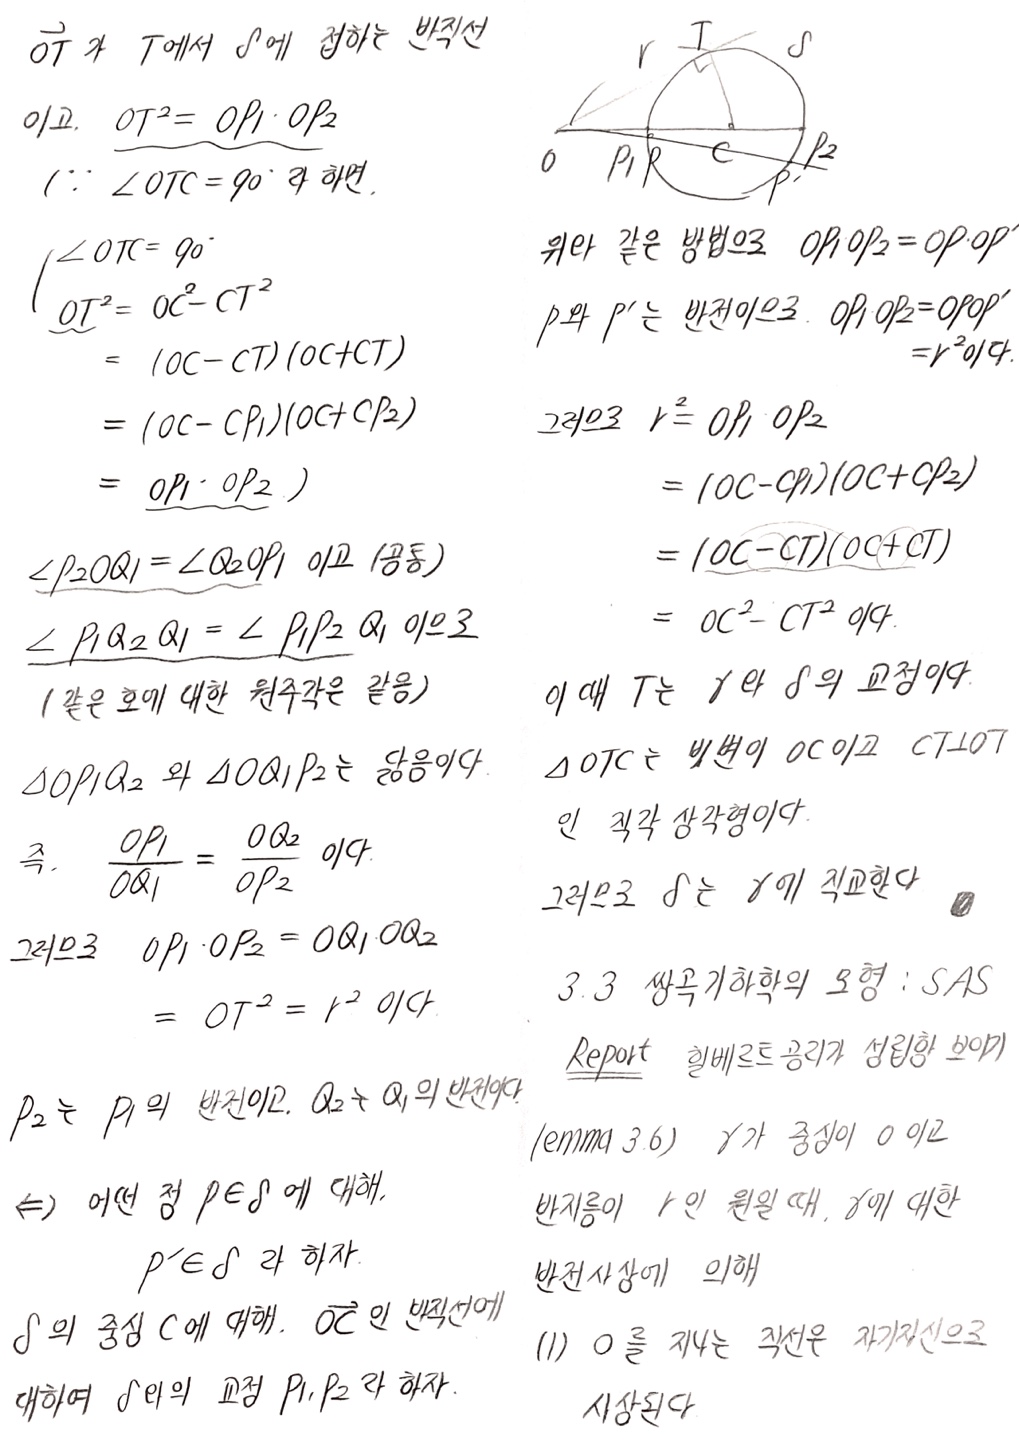 →OT가 T에서 δ에 접하는 반직선
이고. OT² = OP₁·OP₂
(∵ ∠OTC = 90° 라 하면.
∠OTC = 90°
OT² = OC² - CT²
= (OC - CT)(OC + CT)
= (OC - CP₁)(OC + CP₂)
= OP₁·OP₂ )
∠P₂OQ₁ = ∠Q₂OP₁ 이고 (공통)
∠P₁Q₂Q₁ = ∠P₁P₂Q₁ 이므로
(같은 호에 대한 원주각은 같음)
△OP₁Q₂ 와 △OQ₁P₂는 닮음이다.
즉. OP₁/OQ₁ = OQ₂/OP₂ 이다.
그러므로 OP₁·OP₂ = OQ₁·OQ₂
= OT² = r² 이다.
P₂는 P₁의 반전이고. Q₂는 Q₁의 반전이다.
⇐) 어떤 점 P∈δ에 대해.
P′∈δ 라 하자.
δ의 중심 C에 대해. →OC인 반직선에
대하여 δ와의 교점 P₁, P₂라 하자.
r T δ
O P₁ P C P₂
P′
위와 같은 방법으로 OP₁OP₂ = OP·OP′
P와 P′는 반전이므로. OP₁·OP₂ = OPOP′
= r²이다.
그러므로 r² = OP₁ OP₂
= (OC - CP₁)(OC + CP₂)
= (OC - CT)(OC + CT)
= OC² - CT² 이다.
이 때 T는 γ와 δ의 교점이다.
△OTC는 빗변이 OC이고 CT⊥OT
인 직각 삼각형이다.
그러므로 δ는 γ에 직교한다
3.3 쌍곡기하학의 모형 : SAS
Report 힐베르트 공리가 성립함 보이기
lemma 3.6) γ가 중심이 O이고
반지름이 r인 원일 때, γ에 대한
반전사상에 의해
(1) O를 지나는 직선은 자기자신으로
사상된다.